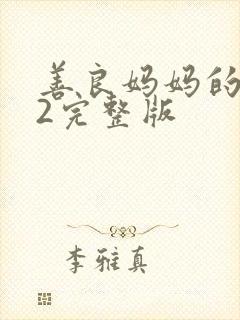 善良妈妈的
2完整版
李雅真